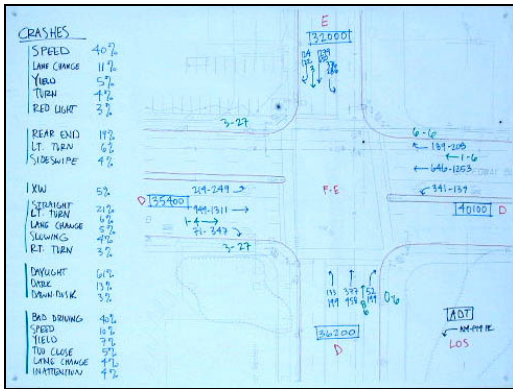 CRASHES
SPEED 40%
LANE CHANGE 11%
YIELD 5%
TURN 4%
RED LIGHT 3%
REAR END 19%
LT. TURN 6%
SIDESWIPE 4%
XW 5%
STRAIGHT 21%
LT. TURN 6%
LANE CHANGE 5%
SLOWING 4%
RT. TURN 3%
DAYLIGHT 61%
DARK 13%
DAWN-DUSK 3%
BAD DRIVING 40%
SPEED 10%
YIELD 7%
TOO CLOSE 5%
LANE CHANGE 4%
INATTENTION 4%
E
32000
3-27
6-6
139-203
1-6
646-1253
341-139
D 35400
214-249
949-1311
1-4
71-347
F-E
40100 D
3-27
133 377 52
199 958 199
0-6
36200
D
ADT
AM-PM PK
LOS